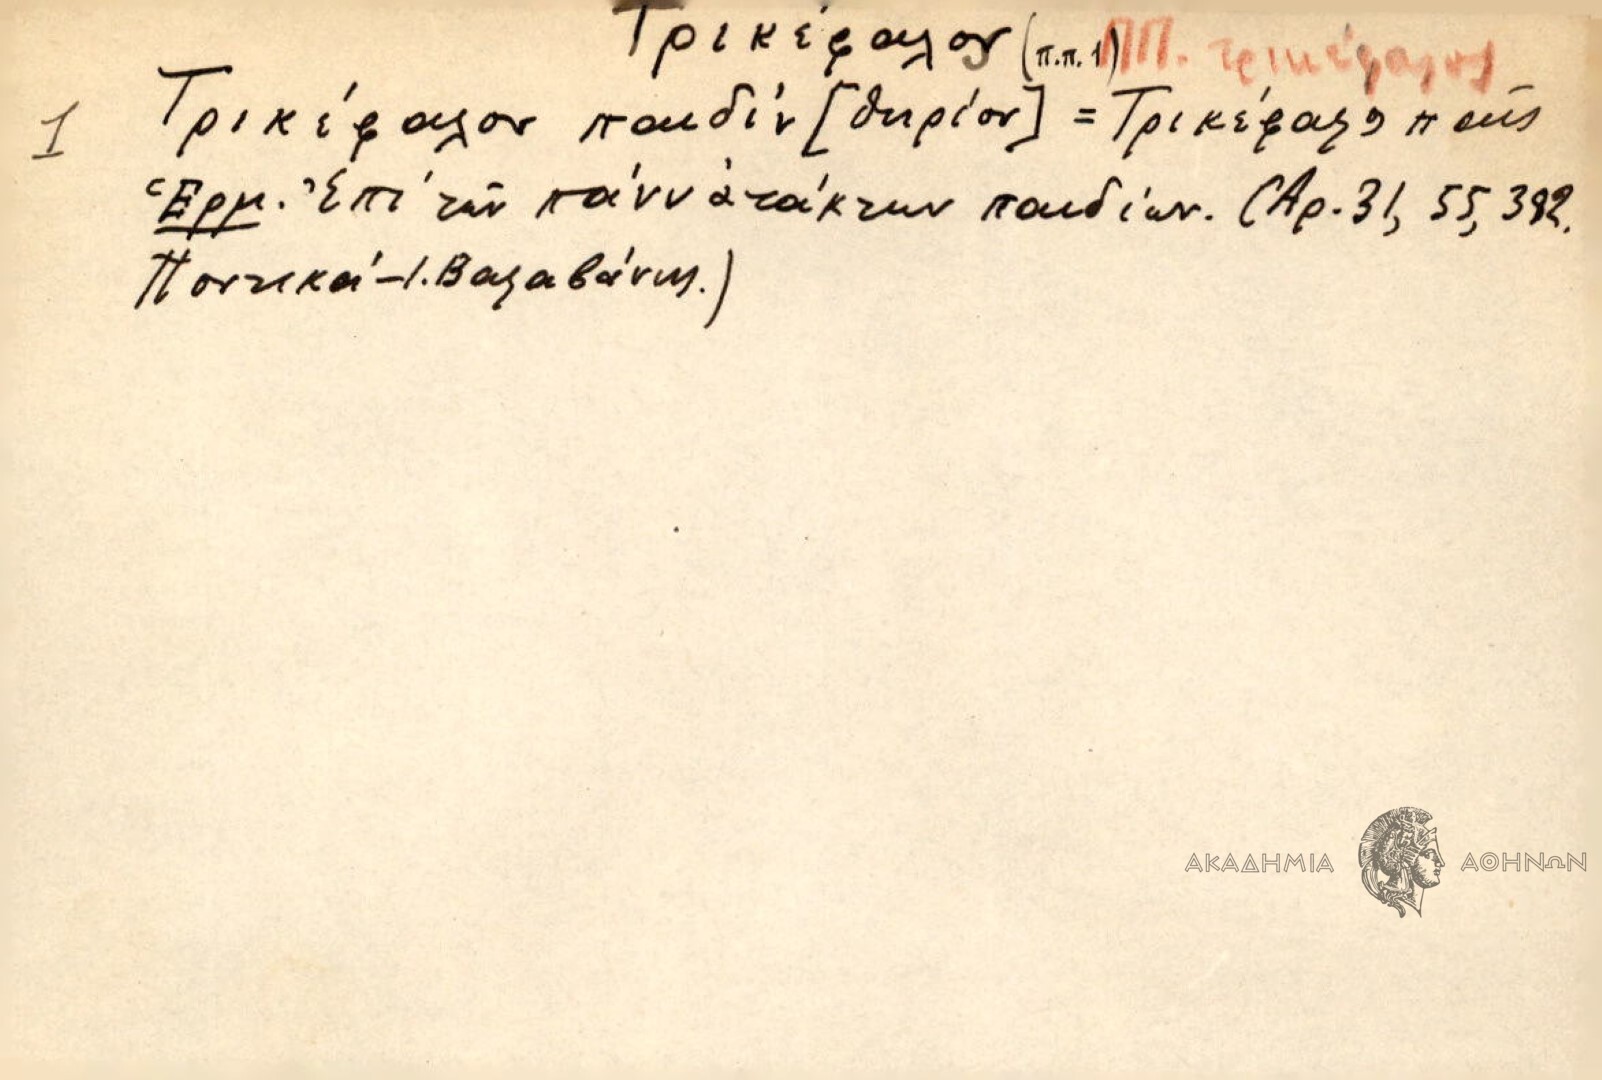 Τρικέφαλον (π.π. 1) ΠΠ. τρικέφαλος
1 Τρικέφαλον παιδίν [θηρίον] = Τρικέφαλο παῖς
Ἑρμ. Ἐπὶ τῶν πάνυ ἀτάκτων παιδίων. (Ἀρ. 31, 55, 382.
Ποντικά - Ι. Βαλαβάνης.)
ΑΚΑΔΗΜΙΑ ΑΘΗΝΩΝ